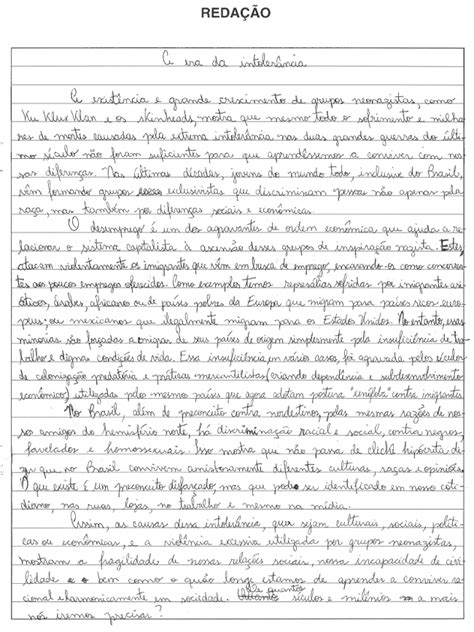 REDAÇÃO
A era da intolerância
A existência e grande crescimento de grupos neonazistas, como
Ku Klux Klan e os skinheads, mostra que mesmo todo o sofrimento e milha
res de mortes causadas pela extrema intolerância nas duas grandes guerras do últi
mo século não foram suficientes para que aprendêssemos a conviver com nos
sas diferenças. Nas últimas décadas, jovens do mundo todo, inclusive do Brasil,
vêm formando grupos exclusivistas que discriminam pessoas não apenas pela
raça, mas também por diferenças sociais e econômicas.
O desemprego é um dos agravantes de ordem econômica que ajuda a re
lacionar o sistema capitalista à ascensão desses grupos de inspiração nazista. Estes,
atacam violentamente os imigrantes que vêm em busca de emprego, encarando-os como concorren
tes aos poucos empregos oferecidos. Como exemplos temos represálias sofridas por imigrantes asi
áticos, árabes, africanos ou de países pobres da Europa que migram para países ricos euro
peus; ou mexicanos que ilegalmente migram para os Estados Unidos. No entanto, essas
minorias são forçadas a migrar de seus países de origem simplesmente pela insuficiência de tra
balho e dignas condições de vida. Essa insuficiência em vários casos, foi agravada pelos séculos
de colonização predatória e práticas mercantilistas (criando dependência e subdesenvolvimento
econômico) utilizadas pelos mesmos países que agora adotam postura "xenófoba" contra imigrantes
No Brasil, além de preconceito contra nordestinos, pelas mesmas razões de nos
sos amigos do hemisfério norte, há discriminação racial e social, contra negros,
favelados e homossexuais. Isso mostra que não passa de clichê hipócrita di
zer que no Brasil convivem amistosamente diferentes culturas, raças e opiniões.
O que existe é um preconceito disfarçado, mas que pode ser identificado em nosso coti
diano, nas ruas, lojas, no trabalho e mesmo na mídia.
Assim, as causas dessa intolerância, quer sejam culturais, sociais, políti
cas ou econômicas, e a violência excessiva utilizada por grupos neonazistas,
mostram a fragilidade de nossas relações sociais, nossa incapacidade de civi
lidade e bem como o quão longe estamos de aprender a conviver ra
cional e harmonicamente em sociedade. De quantos séculos e milênios a mais
nós iremos precisar?